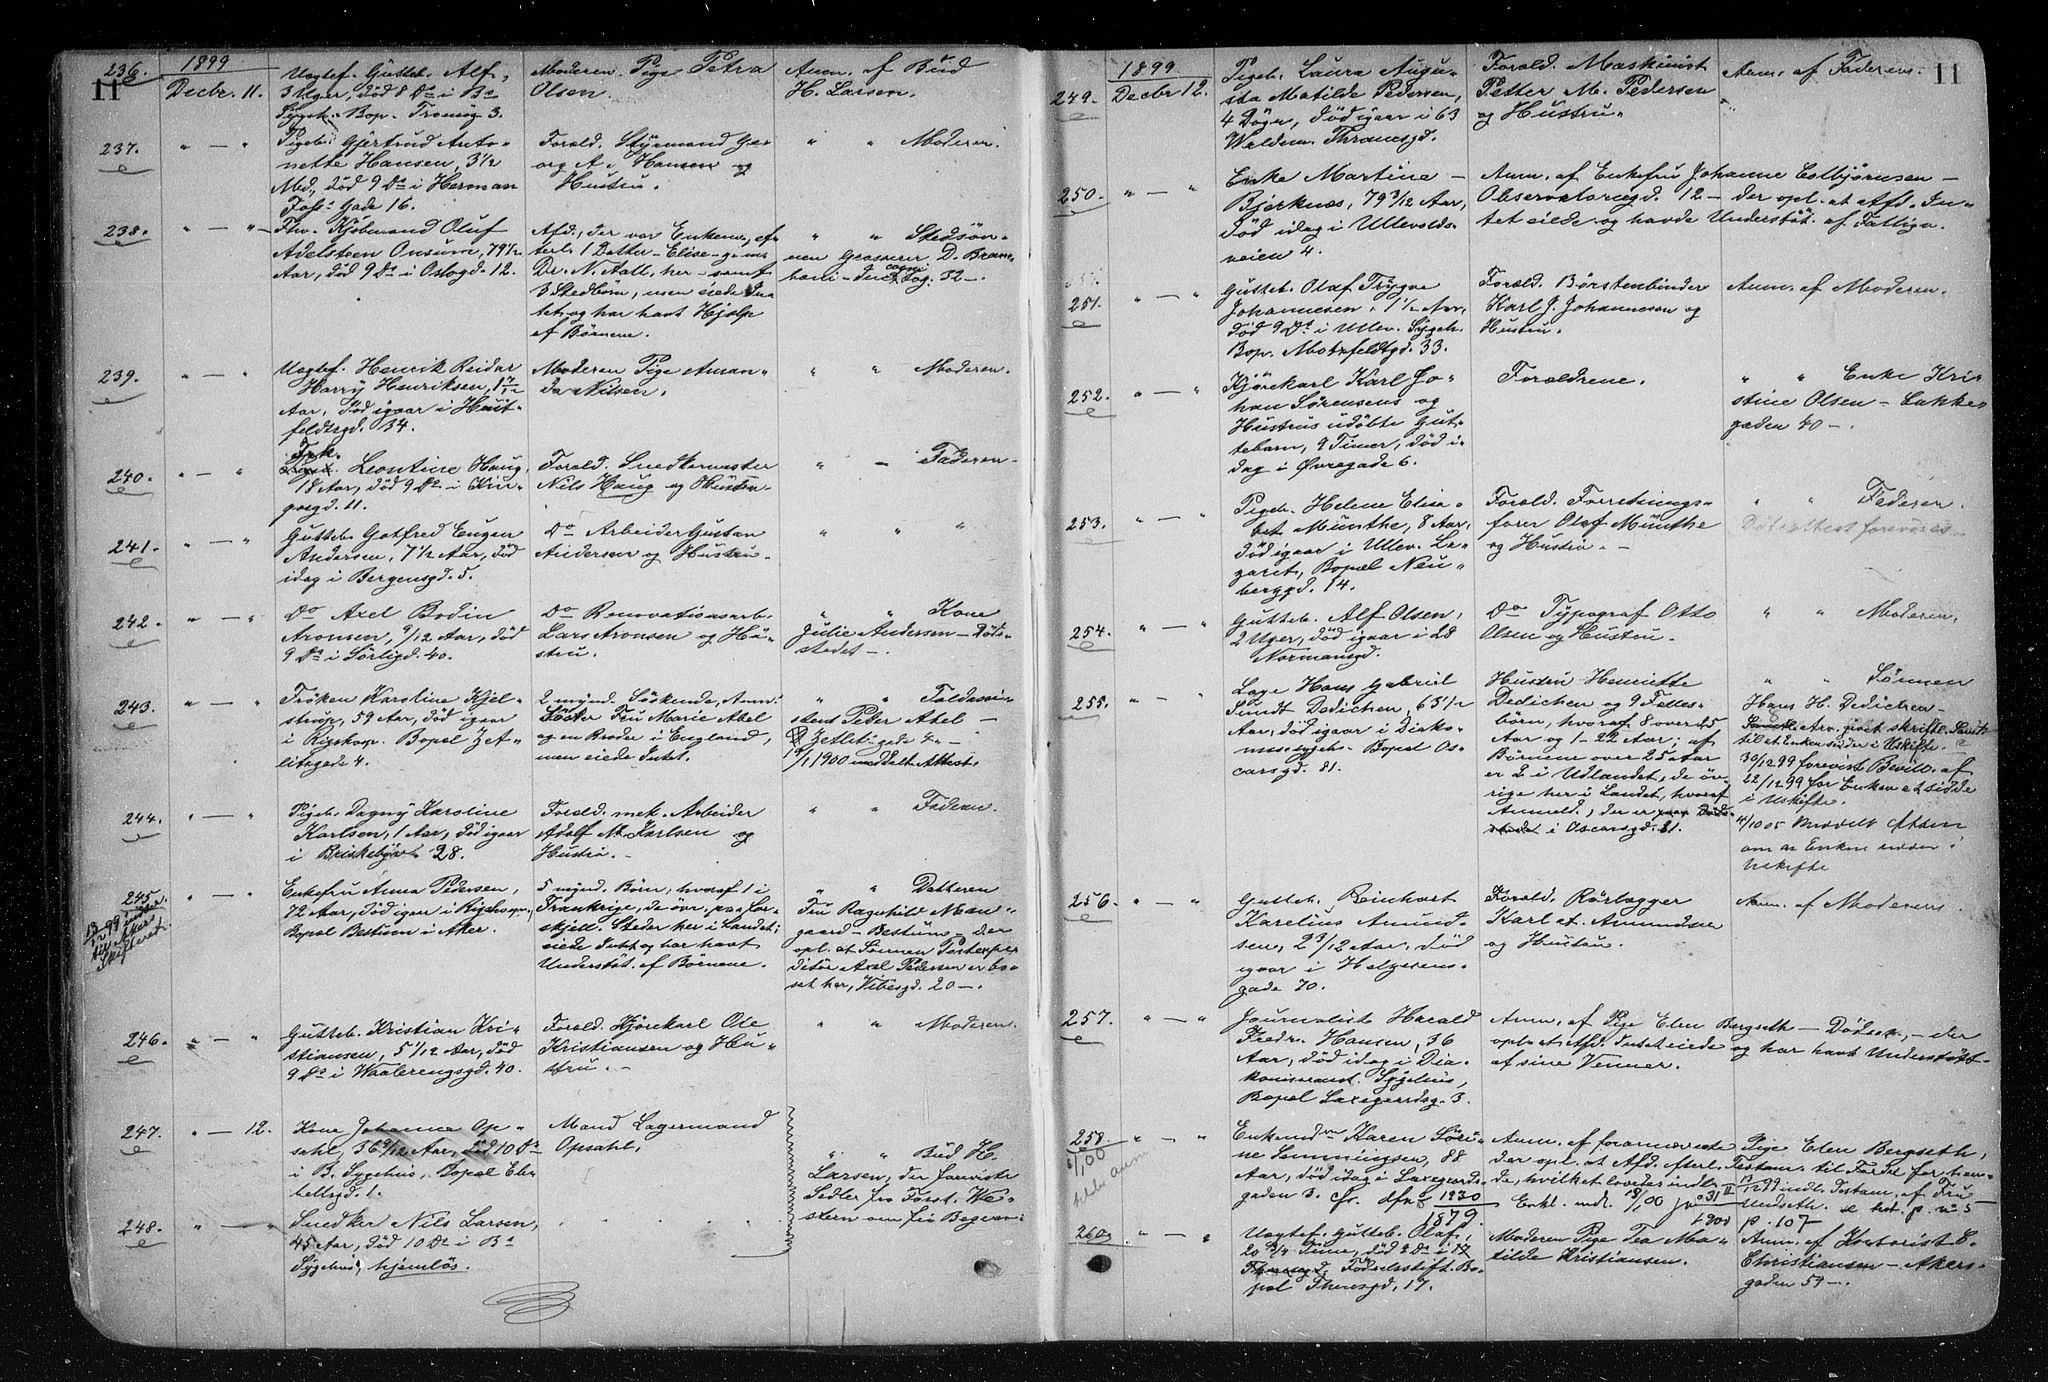 236.
11
1899
Decbr. 11.
Uægtef. Gutteb. Alf,
3 Uger, död 8 Ds i Bs
Sygeh. Bop. Tromsg. 3.
Moderen Pige Petra
Olsen.
Anm. af Bud
H. Larsen.
237.
" — "
Pigeb. Gjertrud Anto-
nette Hansen, 3 1/2
Md, död 9 Ds i Herman
Foss's Gade 16.
Foræld. Styrmand Ge-
org A. Hansen og
Hustru.
" " Moderen.
238.
" — "
Fhv. Kjöbmand Oluf
Adelsteen Onsum, 79 1/2
Aar, död 9 Ds i Oslogd. 12.
Afd., der var Enkem., ef-
terl. 1 Datter - Elise - g. m.
Dr. N. Aall, her - samt
3 Stedbörn, men eiede In-
tet og har havt Hjælp
af Börnene.
" " Stedsön-
nen Grosserer D. Bram-
bani - Incognitog. 32 -.
239.
" — "
Uægtef. Henrik Reidar
Harry Henriksen,
Aar, död igaar i Huit-
feldtsgd. 34.
Moderen Pige Aman-
da Nilsen.
" " Moderen.
240.
" — "
Frk.
Leontine Haug,
18 Aar, död 9 Ds i Krin-
gsgd. 11.
Foræld. Snedkermester
Nils Haug og Hustru.
" — Faderen.
241.
" — "
Gutteb. Gotfred Eugen
Andersen, 7 1/2 Aar, död
idag i Bergensgd. 5.
Do Arbeider Gustav
Andersen og Hustru.
" " "
242.
" — "
Do Axel Bodin
Aronsen, 9/12 Aar, död
9 Ds i Sörligd. 40.
Do Renovationsarb.
Lars Aronsen og Hu-
stru.
" " Kone
Julie Andersen - Döds-
stedet -.
243.
" — "
Fröken Karoline Kjel-
strup, 59 Aar, död igaar
i Rigshosp. Bopæl Zet-
litzgade 4.
2 mynd. Söskende, Anm.
Söster Fru Marie Abel
og en Broder i England,
men eiede Intet.
" " Toldassi-
stent Peter Abel -
Zetlitzgade 4 -
/1 1900 meddelt Attest.
244.
" — "
Pigeb. Dagny Karoline
Karlsen, 1 Aar, död igaar
i Briskebyvei 28.
Foræld. mek. Arbeider
Adolf M. Karlsen og
Hustru. -
" " Faderen.
245.
" — "
til Aker
Skifteret.
Enkefru Anna Pedersen,
72 Aar, död igaar i Rigshosp.,
Bopæl Bestum i Aker.
5 mynd. Börn, hvoraf 1 i
Frankrige, de övr. paa for-
skjell. Steder her i Landet;
eiede Intet og har havt
Understöt. af Börnene.
" " Datteren
Fru Ragnhild Man-
gaard - Bestum - der
opl. at Sönnen Postexpe-
ditör Axel Pedersen er bo-
sat her, Vibesgd. 20 -.
246.
" — "
Gutteb. Kristian Kri-
stiansen, 5 1/12 Aar, död
9 Ds i Waalerengsgd. 40.
Foræld. Kjörekarl Ole
Kristiansen og Hu-
stru. -
" " Moderen.
247.
" — 12.
Kone Johanna Op-
sahl, 36 9/12 Aar, död 10 Ds
i B. Sygehus, Bopæl Eli-
betligd. 1.
Mand Lagermand
Opsahl.
" " Bud H.
Larsen, der foreviste
Sedler fra Forst. We-
stern om fri Begrav.
248.
" — "
Snedker Nils Larsen,
45 Aar, död 10 Ds i Bs
Sygehus, hjemlös.
11
1899
249.
Decbr 12.
Pigeb. Laura Augu-
sta Matilde Pedersen,
4 Dögn, död igaar i 63
Waldem. Thranesgd.
Foræld. Maskinist
Petter M. Pedersen
og Hustru.
Anm. af Faderen.
250.
" — "
Enke Martine -
Bjerknæs, 79 3/12 Aar,
död idag i Ullevolds-
veien 4.
Anm. af Enkefru Johanne Esbjörnsen -
Observatoriegd. 12 - der opl. at Afd. In-
tet eiede og havde Understöt. af Fattigv.
251.
" — "
Gutteb. Olaf Trygve
Johannesen, 1 1/2 Aar,
död 9 Ds i Ullev. Sygeh.
Bop. Motzfeldtgd. 33.
Foræld. Börstenbinder
Karl J. Johannesen og
Hustru.
Anm. af Moderen.
252.
" — "
Kjörekarl Karl Jo-
han Sörensens og
Hustrus udöbte Gut-
tebarn, 9 Timer, död i-
dag i Övregade 6.
Forældrene.
" " Enke Kri-
stine Olsen - Lakke-
gaden 40 -.
253.
" — "
Pigeb. Helene Elisa-
bet Münthe, 8 Aar,
död igaar i Ullev. La-
zaret, Bopæl Neu-
berggd. 14.
Foræld. Forretnings-
förer Olaf Münthe
og Hustru. -
" " Faderen.
Dödsattest forevises
254.
" — "
Gutteb. Alf Olsen,
2 Uger, död igaar i 28
Normansgd.
Do Typograf Otto
Olsen og Hustru.
" " Moderen.
255.
" — "
Læge Hans Gabriel
Sundt Dedichen, 65 1/2
Aar, död igaar i Diako-
nissesygeh. Bopæl Os-
carsgd. 81.
Hustru Henriette
Dedichen og 9 Fælles-
börn, hvoraf 8 over 25
Aar og 1 - 22 Aar; af
Börnene over 25 Aar
er 2 i Udlandet, de öv-
rige her i Landet, hvoraf
Anmeld., der er
i Oscarsgd. 81.
" " Sönnen
Hans H. Dedichen.
Arv. givet skriftl. Samt.
til at Enken sidder i Uskifte.
30/12 99 forevist Bevill. af
22/12 99 for Enken at sidde
i Uskifte.
4/10 05 Meddelt Attest
om at Enken sidder i
Uskifte
256.
" — "
Gutteb. Reinhart
Karelius Amund-
sen, 2 3/12 Aar, död
igaar i Helgesens-
gade 70.
Foræld. Rörlægger
Karl A. Amundsen
og Hustru.
Anm. af Moderen.
257.
" — "
Journalist Harald
Fredr. Hansen, 36
Aar, död idag i Dia-
konisseanst. Sygehus,
Bopæl Laxegaardsg. 3.
Anm. af Pige Elen Bergseth - Dödsn. -, der
opl. at Afd. Intet eiede og har havt Understöt-
af sine Venner.
258.
" — "
/1 00
Enkemdm Karen Söri-
ne Lemmingsen, 88
Aar, död idag i Laxegaards-
gaden 3. cfr. dfn. 1930
1879.
Anm. af forannævnte Pige Elen Bergseth,
der opl. at Afd. efterl. Testam. til Fordel for hen-
de, hvilket leveres indl. 13/12 99 indl. Testam. af Fru
Undseth. se hof. p. no. 5
p. 107
260.
" — "
Uægtef. Gutteb. Olaf,
20 3/4 Time, död 9 Ds i 17
Födselsstift. Bo-
pæl Thensgd. 17.
Moderen Pige Tea Ma-
tilde Kristiansen.
Anm. af Kontorist C.
Christiansen - Akers-
gaden 59 -.